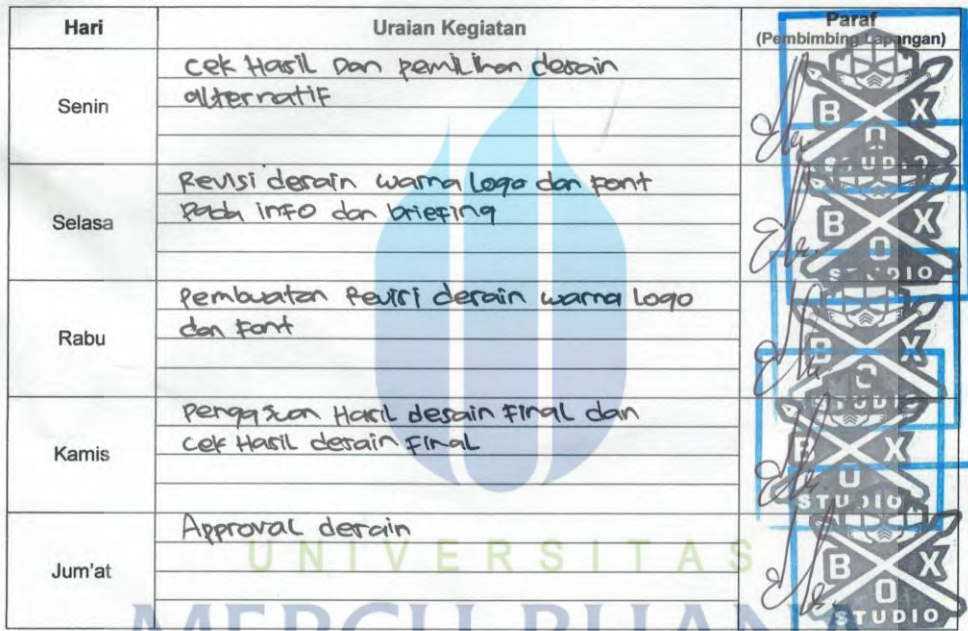 Hari Uraian Kegiatan Paraf
(Pembimbing Lapangan)
Senin
Cek Hasil Dan pemilihan desain
alternatif
BOX
STUDIO
Selasa
Revisi desain warna Logo dan Font
Pada info dan briefing
BOX
STUDIO
Rabu
Pembuatan Revisi desain warna Logo
dan Font
BOX
STUDIO
Kamis
Hasil desain Final dan
Cek Hasil desain Final
BOX
STUDIO
Jum'at
Approval desain
BOX
STUDIO
UNIVERSITAS
MERCU BUANA